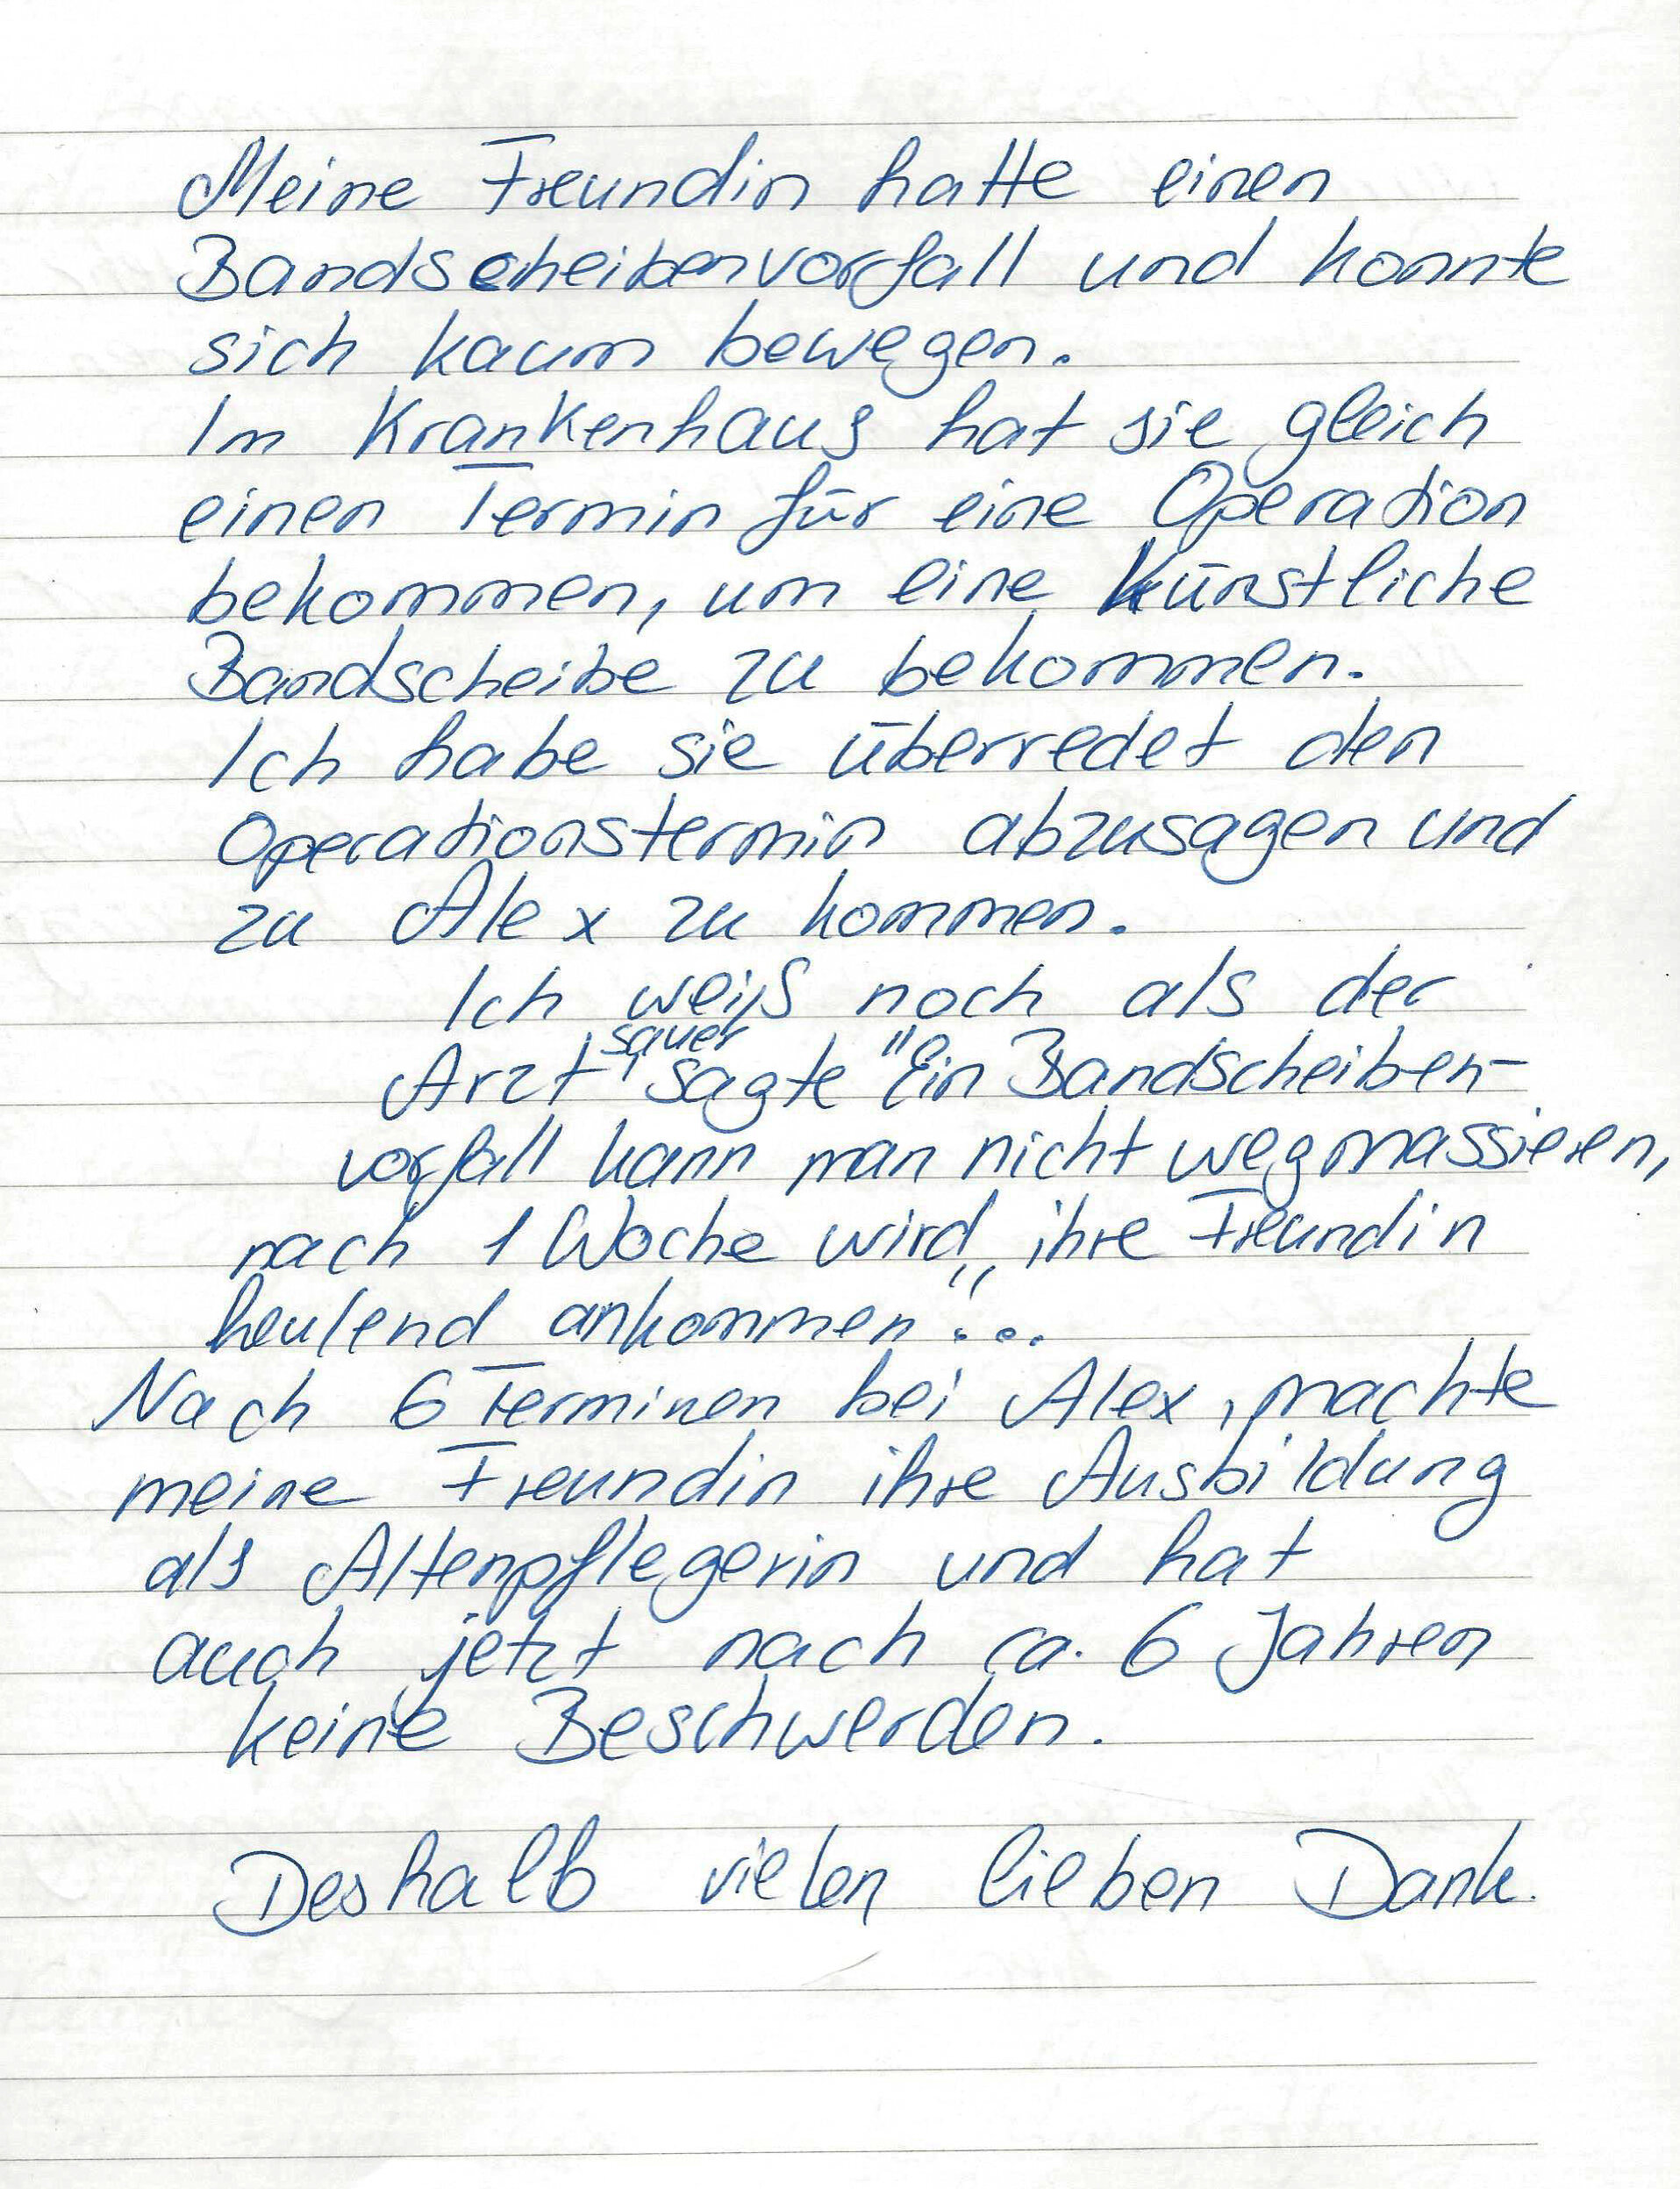 Meine Freundin hatte einen
Bandscheibenvorfall und konnte
sich kaum bewegen.
Im Krankenhaus hat sie gleich
einen Termin für eine Operation
bekommen, um eine künstliche
Bandscheibe zu bekommen.
Ich habe sie überredet den
Operationstermin abzusagen und
zu Alex zu kommen.
Ich weiß noch als der
Arzt sauer sagte "Ein Bandscheiben-
vorfall kann man nicht wegmassieren,
nach 1 Woche wird ihre Freundin
heulend ankommen"...
Nach 6 Terminen bei Alex, machte
meine Freundin ihre Ausbildung
als Altenpflegerin und hat
auch jetzt nach ca. 6 Jahren
keine Beschwerden.
Deshalb vielen lieben Dank.